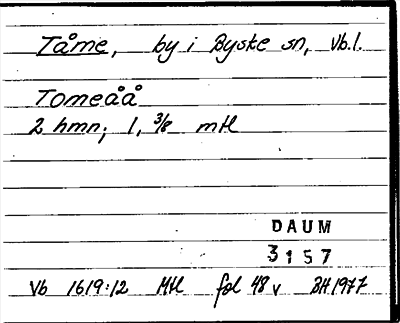 Tåme, by i Byske sn, Vb.l.
Tomeåå
2 hmn; 1, 3/8 mtl
DAUM
3157
Vb 1619:12 Mtl fol 48 v BH 1977